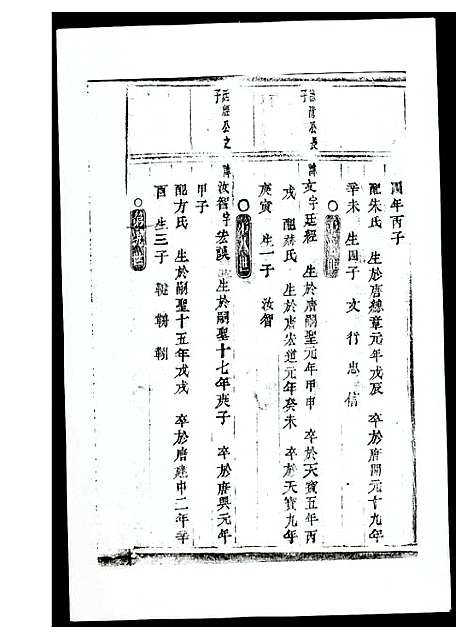 四年丙子
配朱氏 生於唐總章元年戊辰 卒於唐開元十九年
辛未 生四子 文 行 忠 信
諱文字廷經 生於唐嗣聖元年甲申 卒於天寶五年丙
戌 配蘇氏 生於唐宏道元年癸未 卒於天寶九年
庚寅 生一子 汝智
廷經公之
子
諱汝智字宏謨 生於嗣聖十七年庚子 卒於唐興元年
甲子
配方氏 生於嗣聖十五年戊戌 卒於唐建中二年辛
酉 生三子